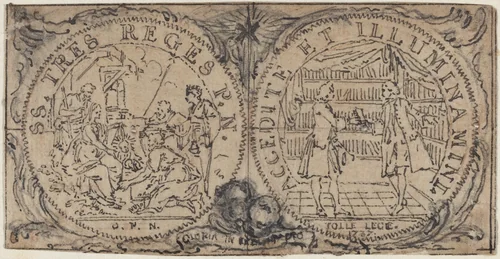 SS TRES REGES P. N.
O. P. N.
GLORIA IN
ACCEDITE ET ILLUMINAMINI
TOLLE LEGE.